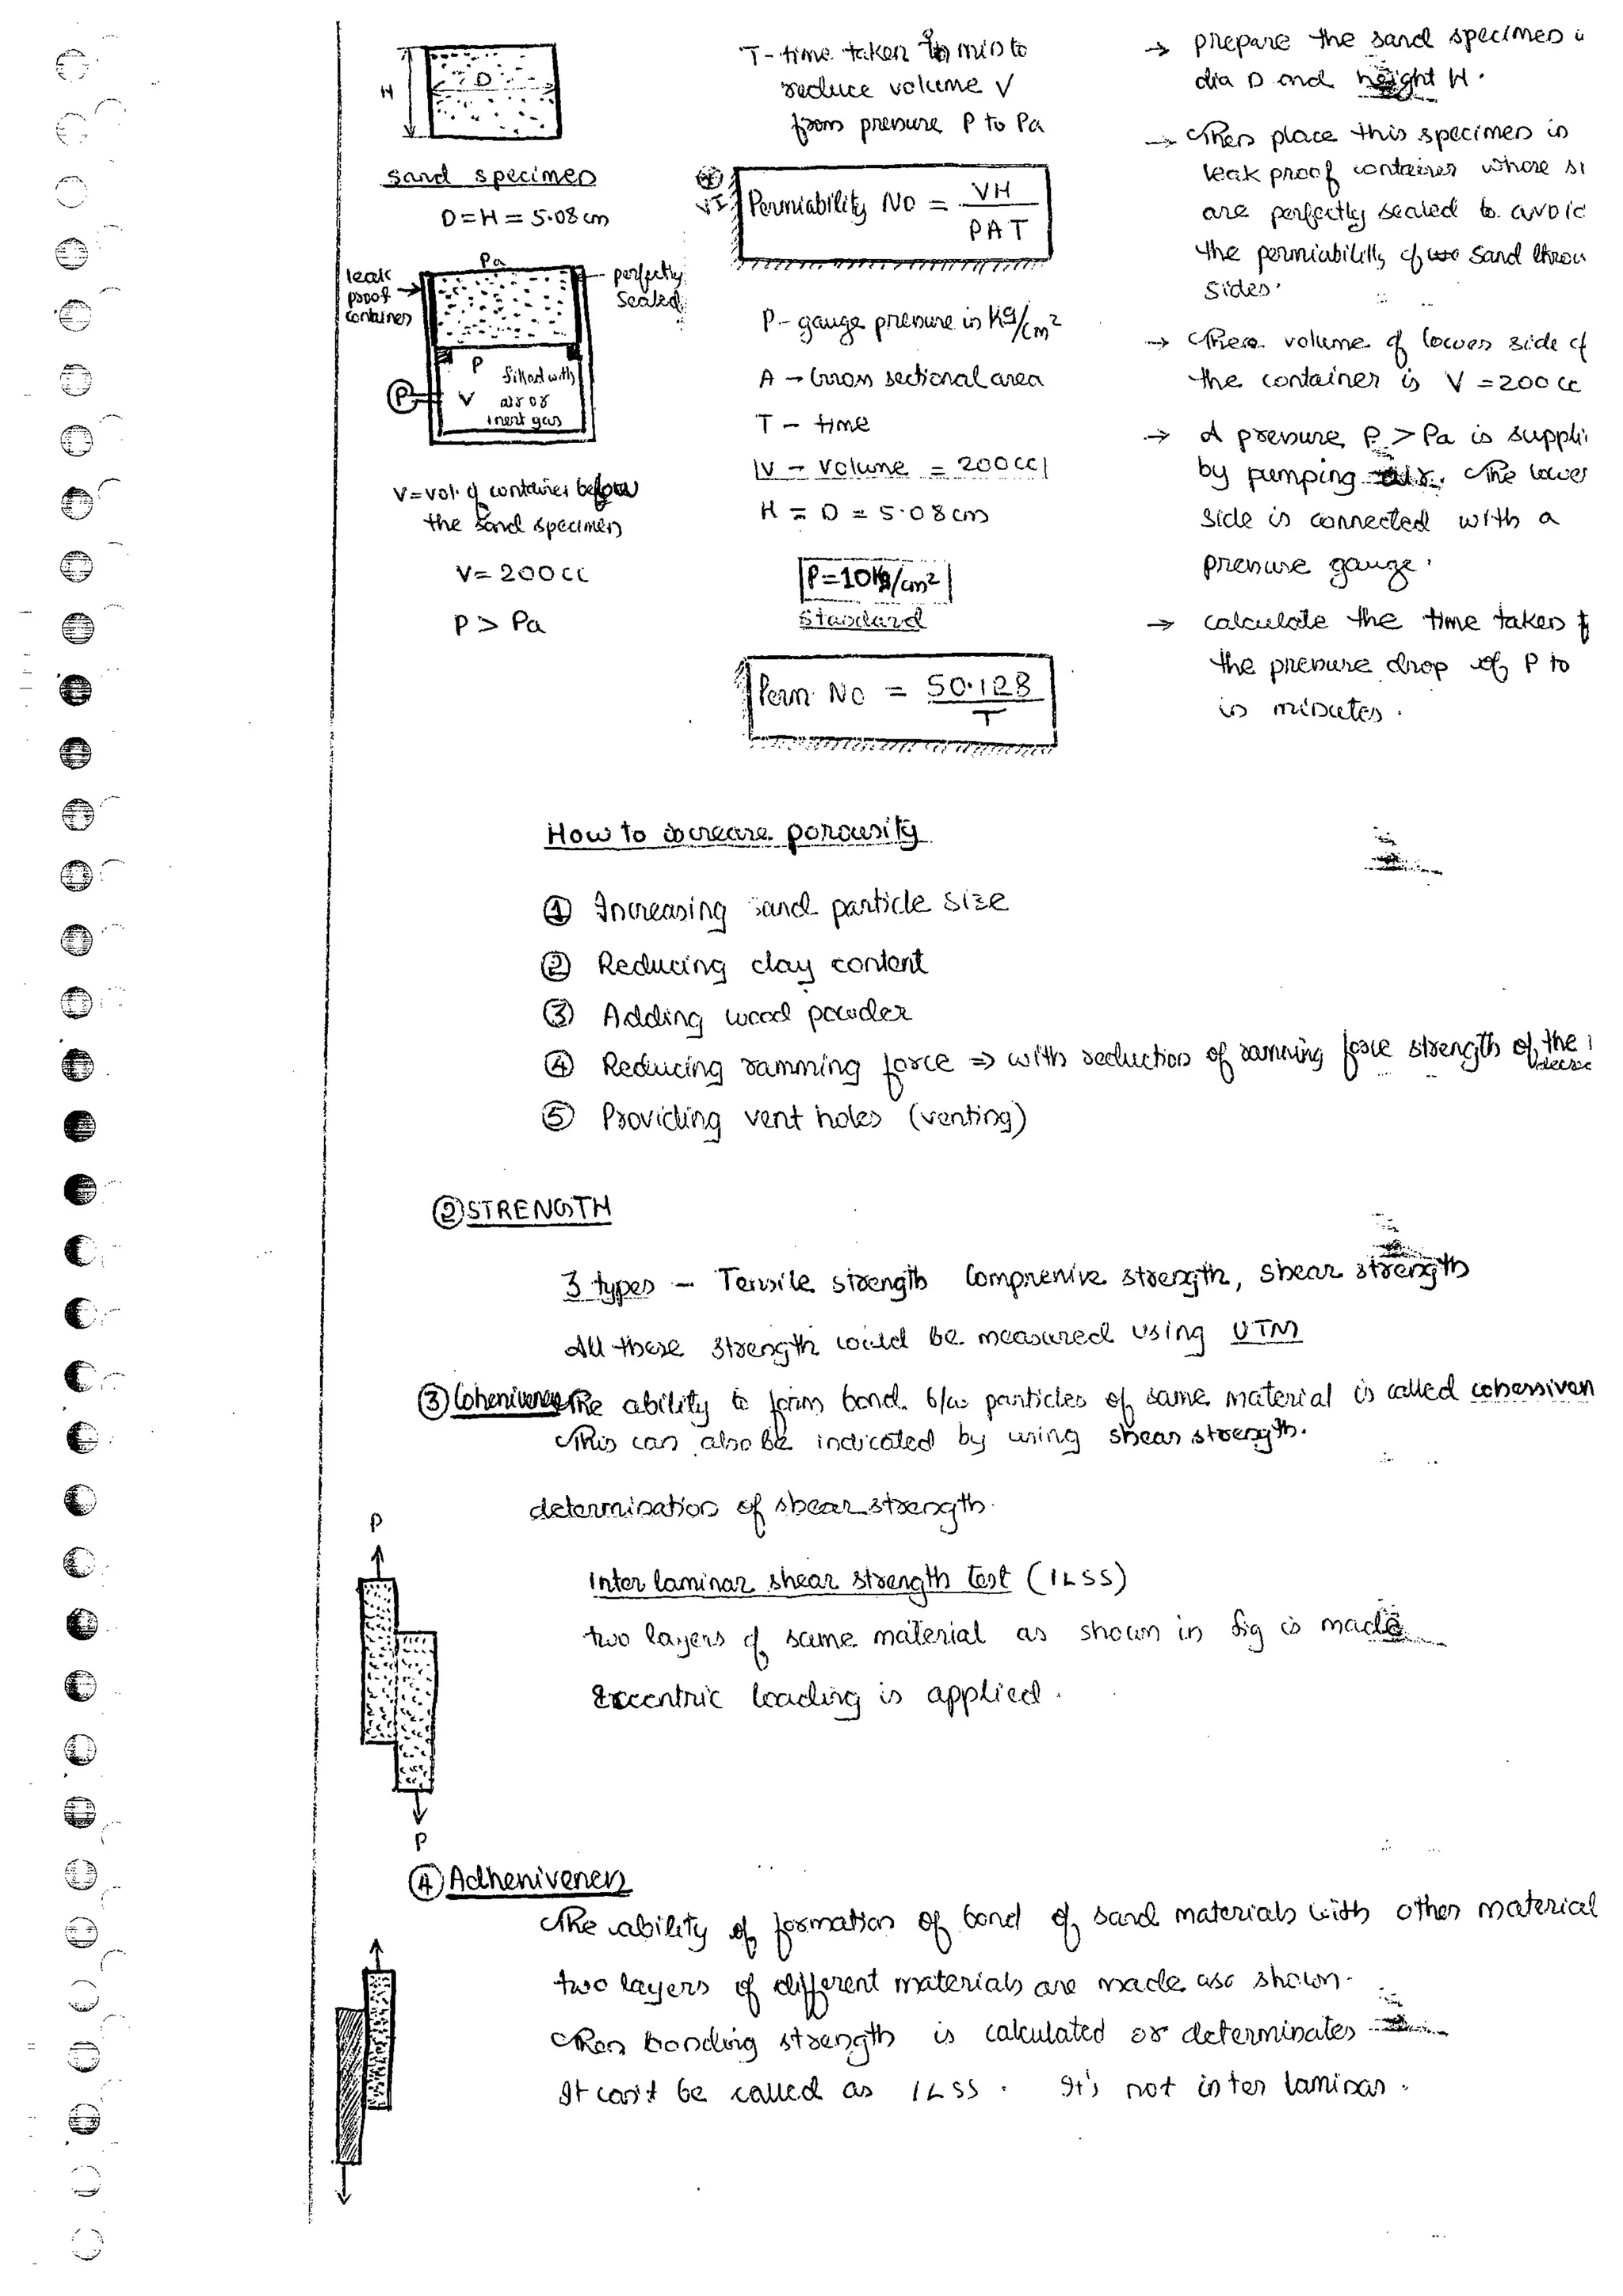 H
D
sand specimen
D=H = 5.08cm
Pa
leak
proof
container
perfectly
sealed
P
filled with
V
air or
inert gas
P
V=vol. of container below
the sand specimen
V= 200cc
P > Pa
T- time taken in min to
reduce volume V
from pressure P to Pa
VI
Permiability No = VH
PAT
P- gauge pressure in Kg/cm²
A - Cross sectional area
T - time
V - Volume = 200cc
H = D = 5.08cm
P=10Kg/cm²
Standard
Perm. No = 50.128
T
→ prepare the sand specimen
dia D and height H.
→ Then place this specimen in
leak proof container whose
are perfectly sealed to avoid
the permiability of sand
sides.
→ There volume of lower side of
the container is V = 200cc
→ A pressure P > Pa is
by pumping air. The lower
side is connected with a
pressure gauge.
→ calculate the time taken
the pressure drop of P to
in minutes.
How to increase porousity
① Increasing sand particle size
② Reducing clay content
③ Adding wood powder
④ Reducing ramming force ⇒ with reduction of ramming force strength of the
⑤ Providing vent holes (venting)
② STRENGTH
3 types - Tensile strength Compressive strength, shear strength
All these strength could be measured using UTM
③ Cohesiveness The ability to form bond b/w particles of same material is called
This can also be indicated by using shear strength.
determination of shear strength.
P
Inter laminar shear strength test (ILSS)
two layers of same material as shown in fig is made
Eccentric loading is applied.
P
④ Adhesiveness
The ability of formation of bond of sand materials with other material
two layers of different materials are made as shown.
Then bonding strength is calculated or determinates
It can't be called as ILSS. It's not inter laminar.